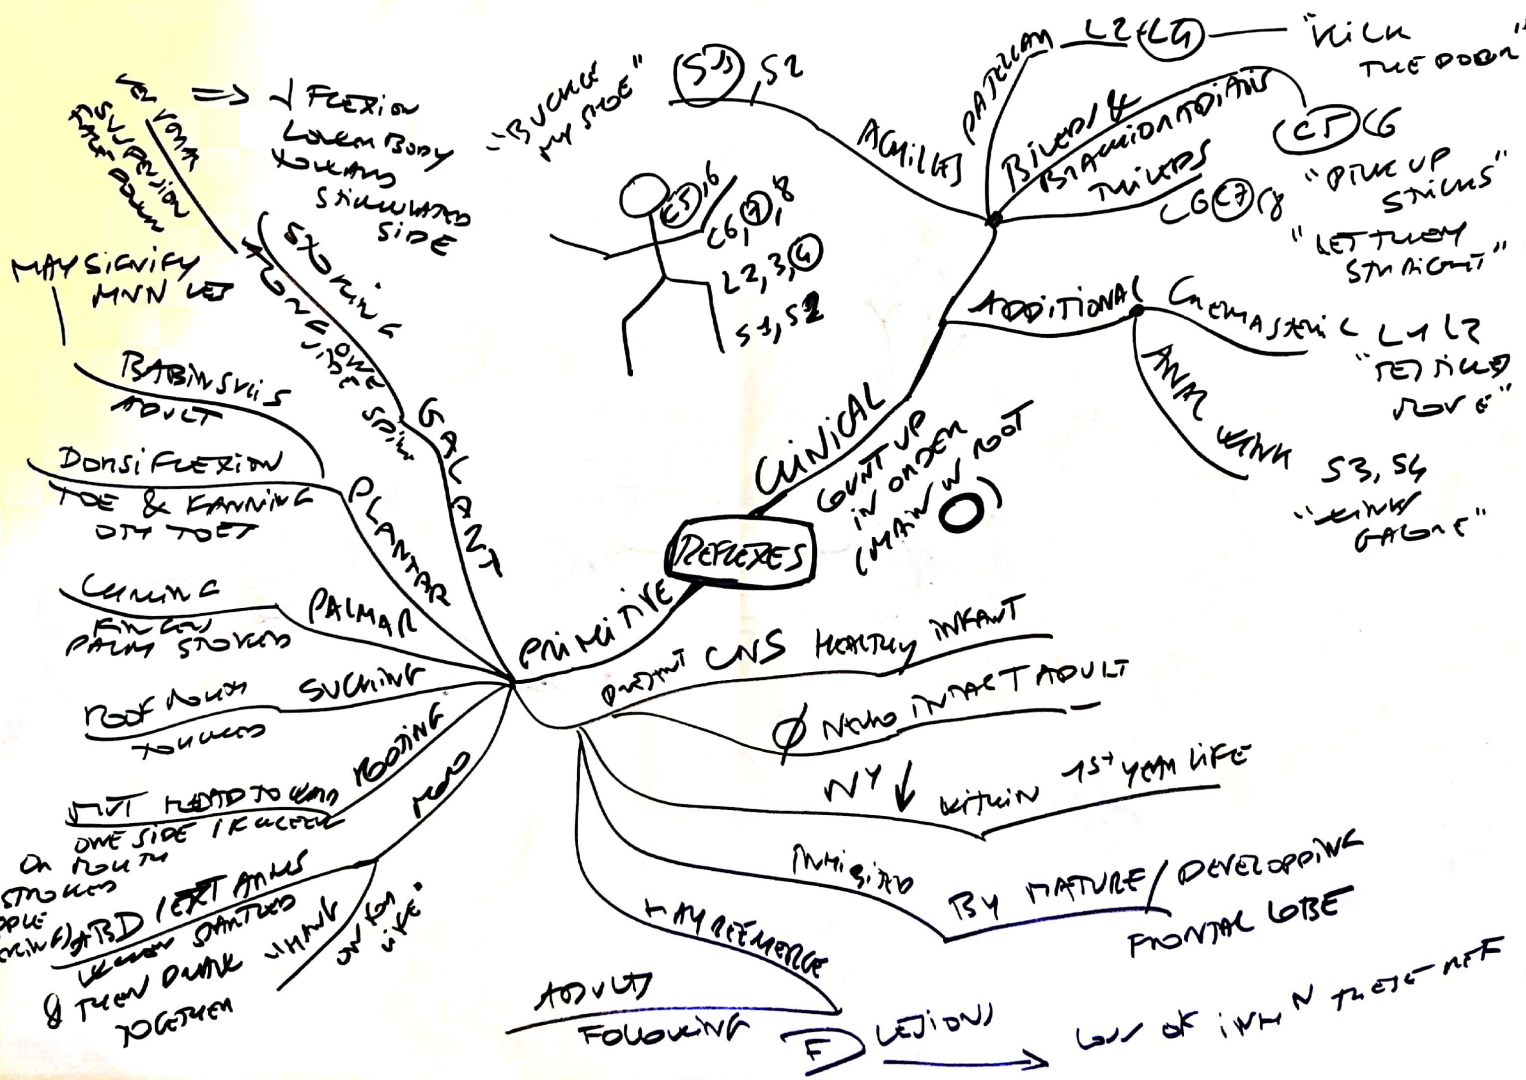 REFLEXES
CLINICAL
COUNT UP
IN ORDER
(MAIN N ROOT
O)
ACHILLES
S1, S2
"BUCKLE
MY SHOE"
PATELLAR
L2-L4
"KICK
THE DOOR"
BICEPS &
BRACHIORADIALIS
C5 C6
"PICK UP
STICKS"
TRICEPS
C6 C7 C8
"LET THEM
STRAIGHT"
C5,6
C6,7,8
L2,3,4
S1,S2
ADDITIONAL
CREMASTERIC
L1 L2
"TESTICLES
MOVE"
ANAL WINK
S3, S4
"WINKS
GALORE"
PRIMITIVE
PRESENT CNS HEALTHY INFANT
Ø NEURO INTACT ADULT
NY ↓ WITHIN 1ST YEAR LIFE
INHIBITED
BY MATURE / DEVELOPPING
FRONTAL LOBE
MAY REEMERGE
ADULTS
FOLLOWING
F LESIONS → LOSS OF INH N THESE REF
GALANT
STROKING
ALONG ONE
SIDE SPINE
VENTRAL
SUSPENSION
FACE DOWN
⇒ FLEXION
LOWER BODY
TOWARDS
STIMULATED
SIDE
PLANTAR
DORSIFLEXION
TOE & FANNING
OTH TOES
BABINSKI IS
ADULT
MAY SIGNIFY
MNN LES
PALMAR
CURLING
FINGERS
PALM STOKED
SUCKING
ROOF MOUTH
TOUCHED
ROOTING
MVT HEAD TOWARD
ONE SIDE IF CHEEK
OR MOUTH
STROKED
MORO
ABD / EXT ARMS
WHEN STARTLED
& THEN DRAW
TOGETHER